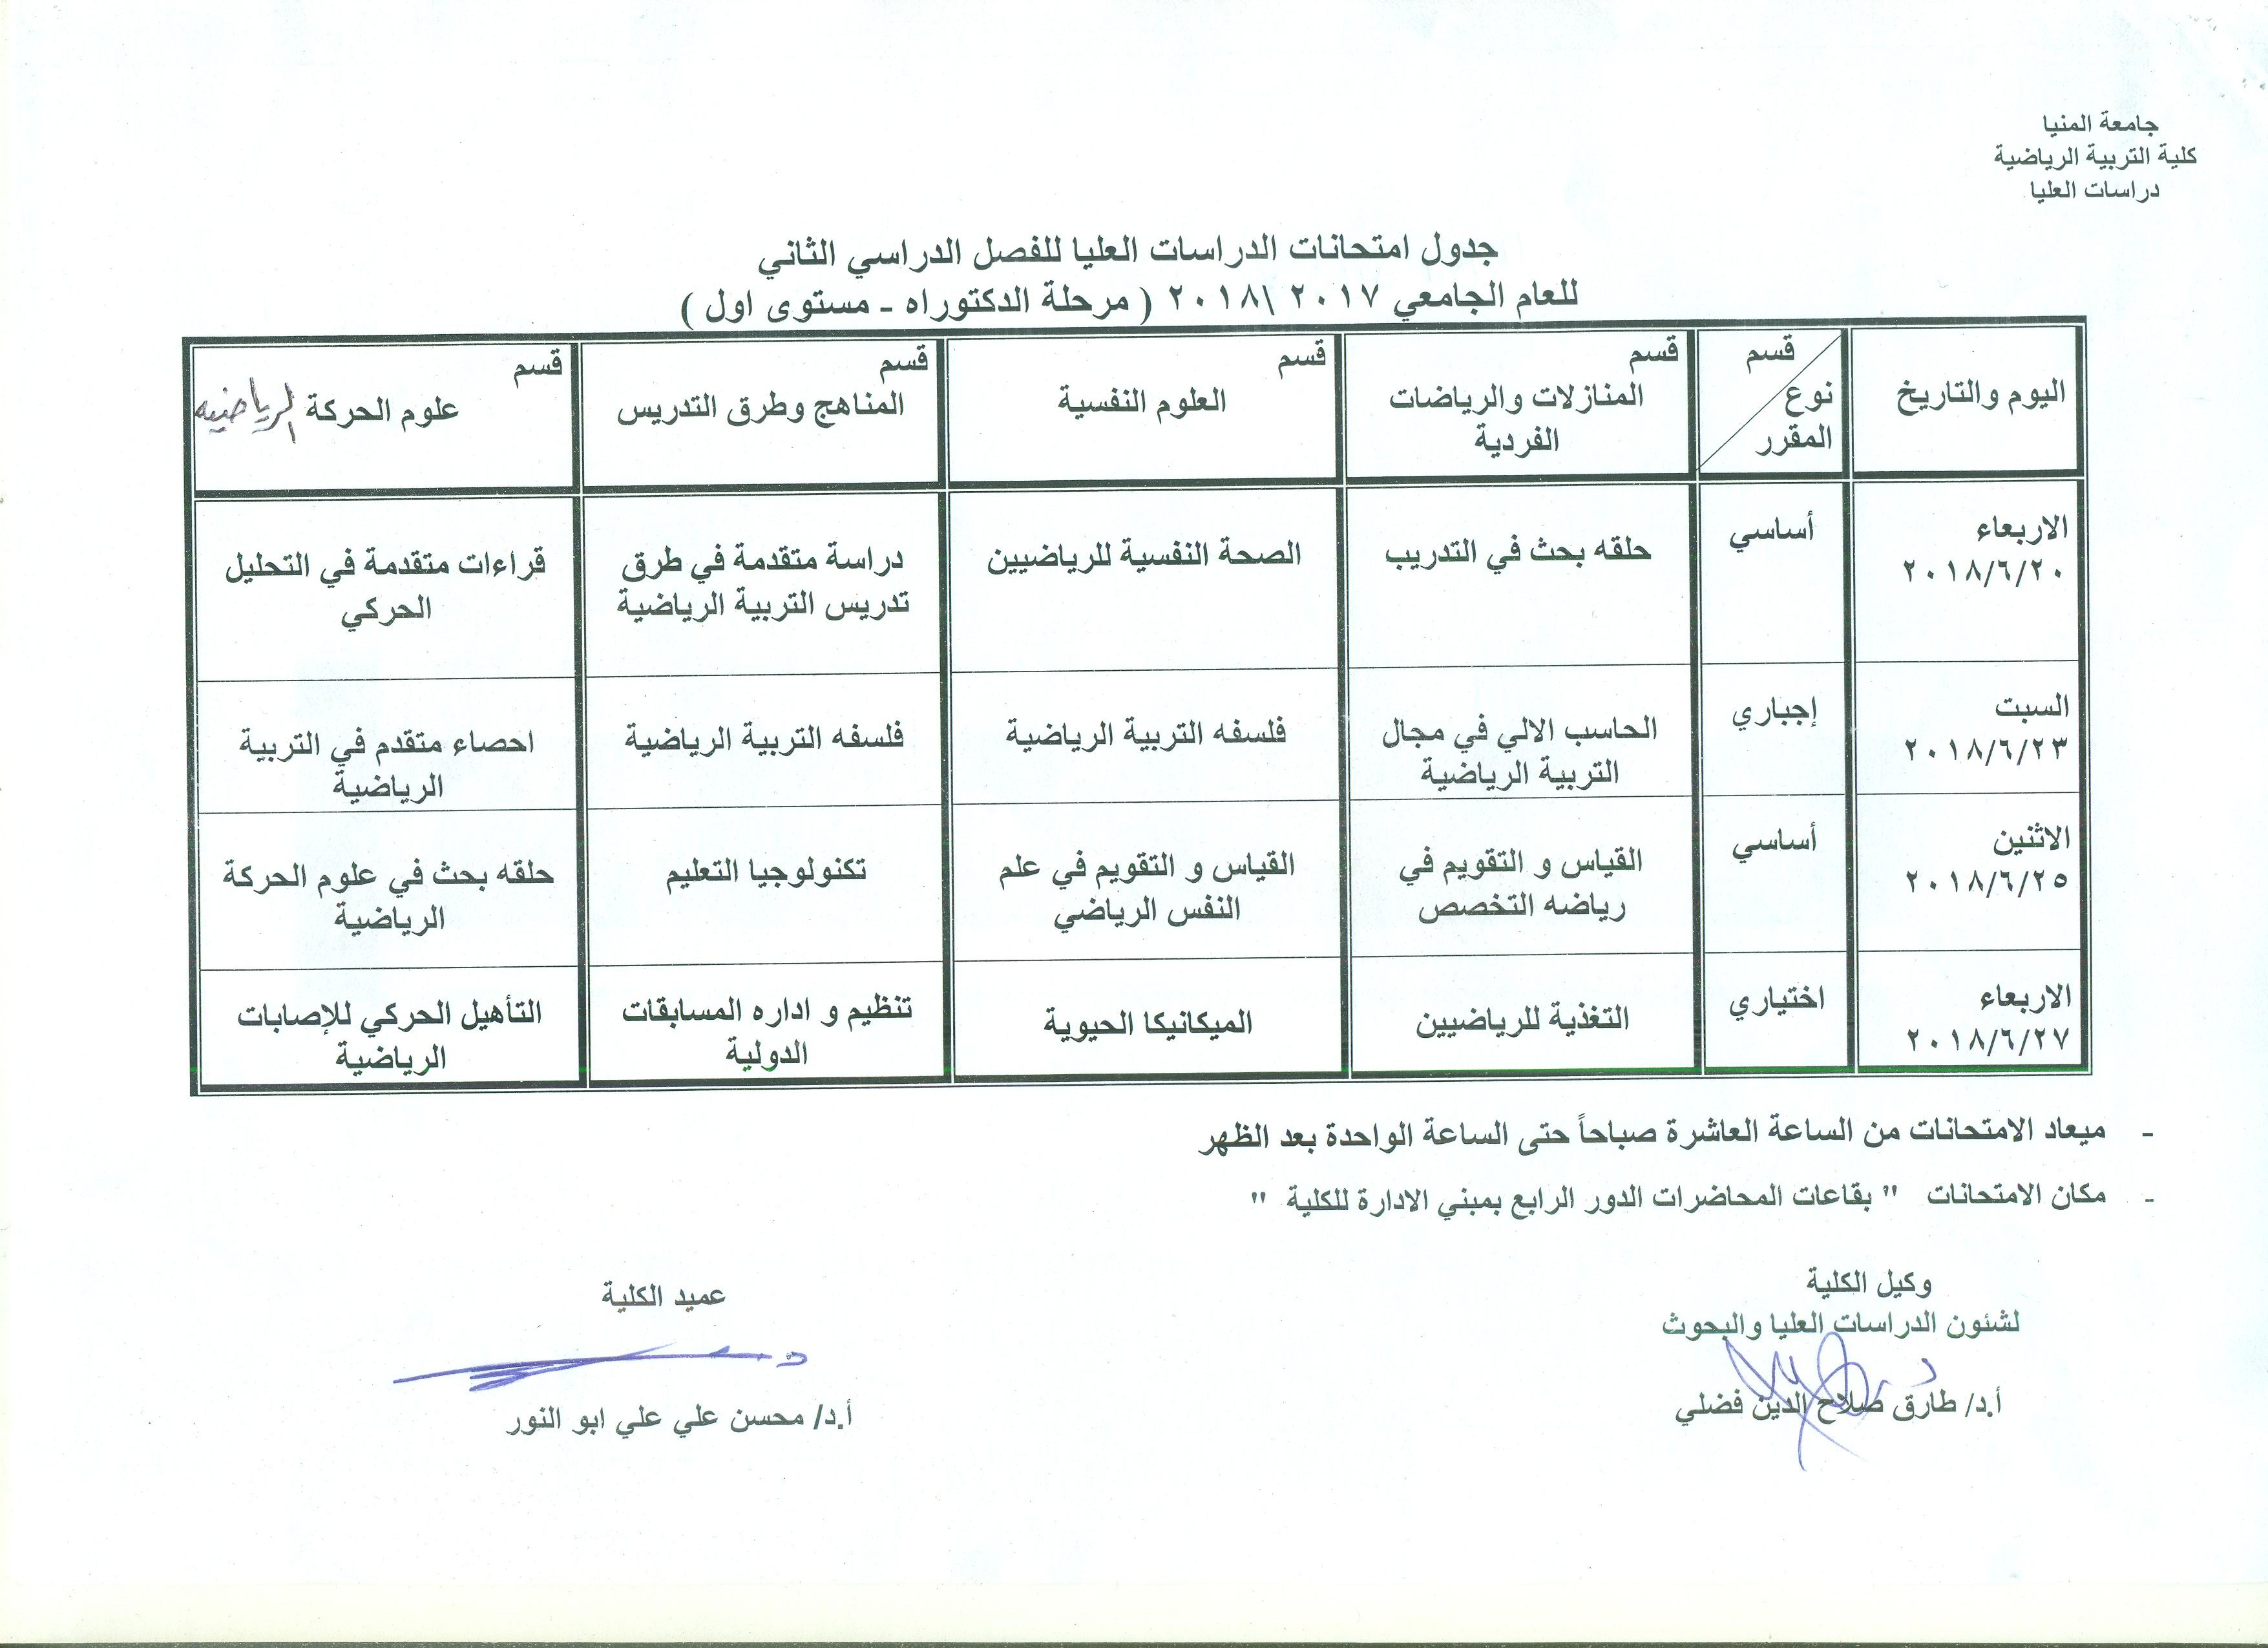 جامعة المنيا
كلية التربية الرياضية
دراسات العليا
جدول امتحانات الدراسات العليا للفصل الدراسي الثاني
للعام الجامعي ٢٠١٧ \٢٠١٨ ( مرحلة الدكتوراه - مستوى اول )
اليوم والتاريخ
قسم
نوع
المقرر
قسم
المنازلات والرياضات
الفردية
قسم
العلوم النفسية
قسم
المناهج وطرق التدريس
قسم
علوم الحركة الرياضيه
الاربعاء
٢٠١٨/٦/٢٠
أساسي
حلقه بحث في التدريب
الصحة النفسية للرياضيين
دراسة متقدمة في طرق
تدريس التربية الرياضية
قراءات متقدمة في التحليل
الحركي
السبت
٢٠١٨/٦/٢٣
إجباري
الحاسب الالي في مجال
التربية الرياضية
فلسفه التربية الرياضية
فلسفه التربية الرياضية
احصاء متقدم في التربية
الرياضية
الاثنين
٢٠١٨/٦/٢٥
أساسي
القياس و التقويم في
رياضه التخصص
القياس و التقويم في علم
النفس الرياضي
تكنولوجيا التعليم
حلقه بحث في علوم الحركة
الرياضية
الاربعاء
٢٠١٨/٦/٢٧
اختياري
التغذية للرياضيين
الميكانيكا الحيوية
تنظيم و اداره المسابقات
الدولية
التأهيل الحركي للإصابات
الرياضية
- ميعاد الامتحانات من الساعة العاشرة صباحاً حتى الساعة الواحدة بعد الظهر
- مكان الامتحانات " بقاعات المحاضرات الدور الرابع بمبني الادارة للكلية "
وكيل الكلية
لشئون الدراسات العليا والبحوث
أ.د/ طارق صلاح الدين فضلي
عميد الكلية
أ.د/ محسن علي علي ابو النور